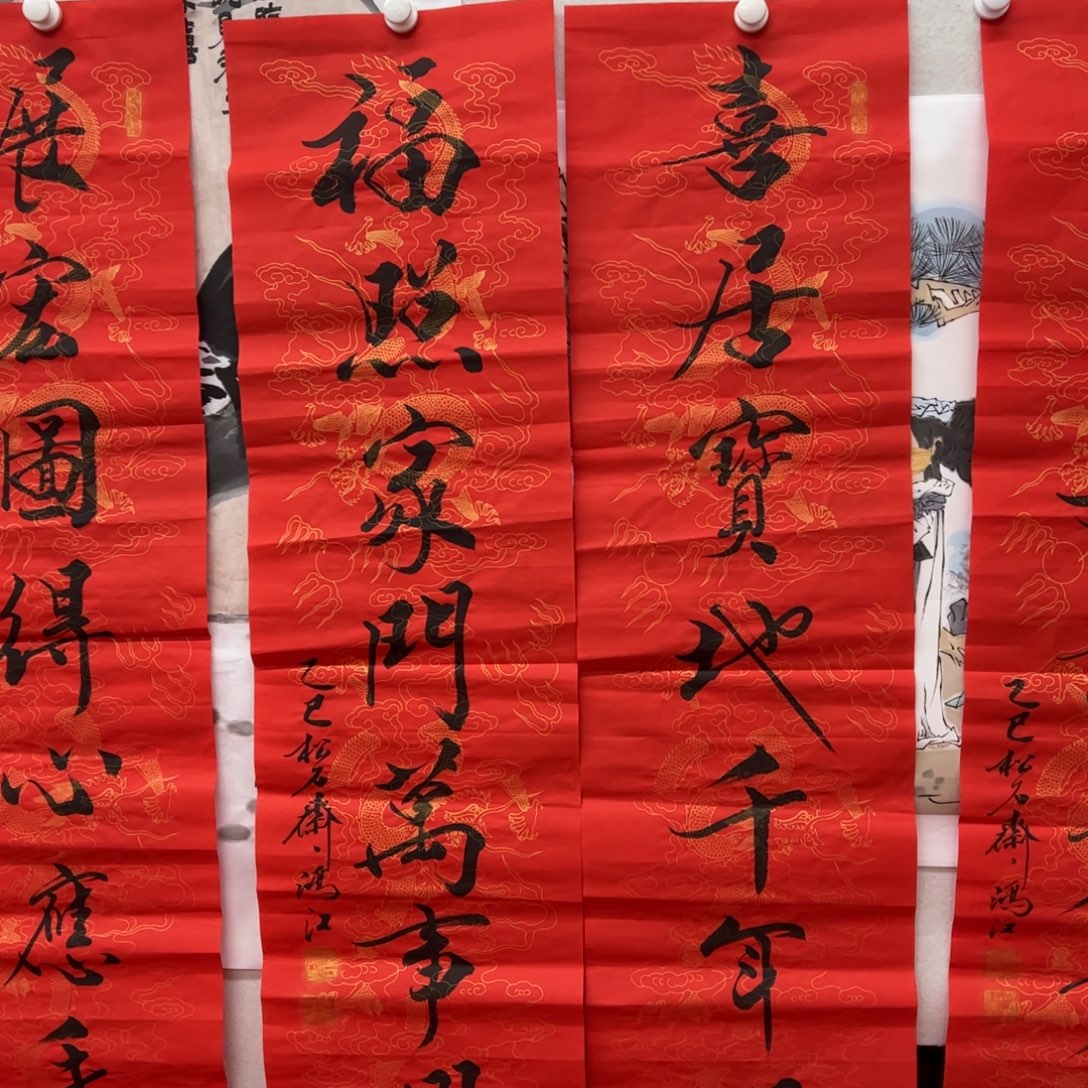 喜居寶地千年
福照家門萬事
乙巳松石齋鴻江
展宏圖得心應手
乙巳松石齋鴻江